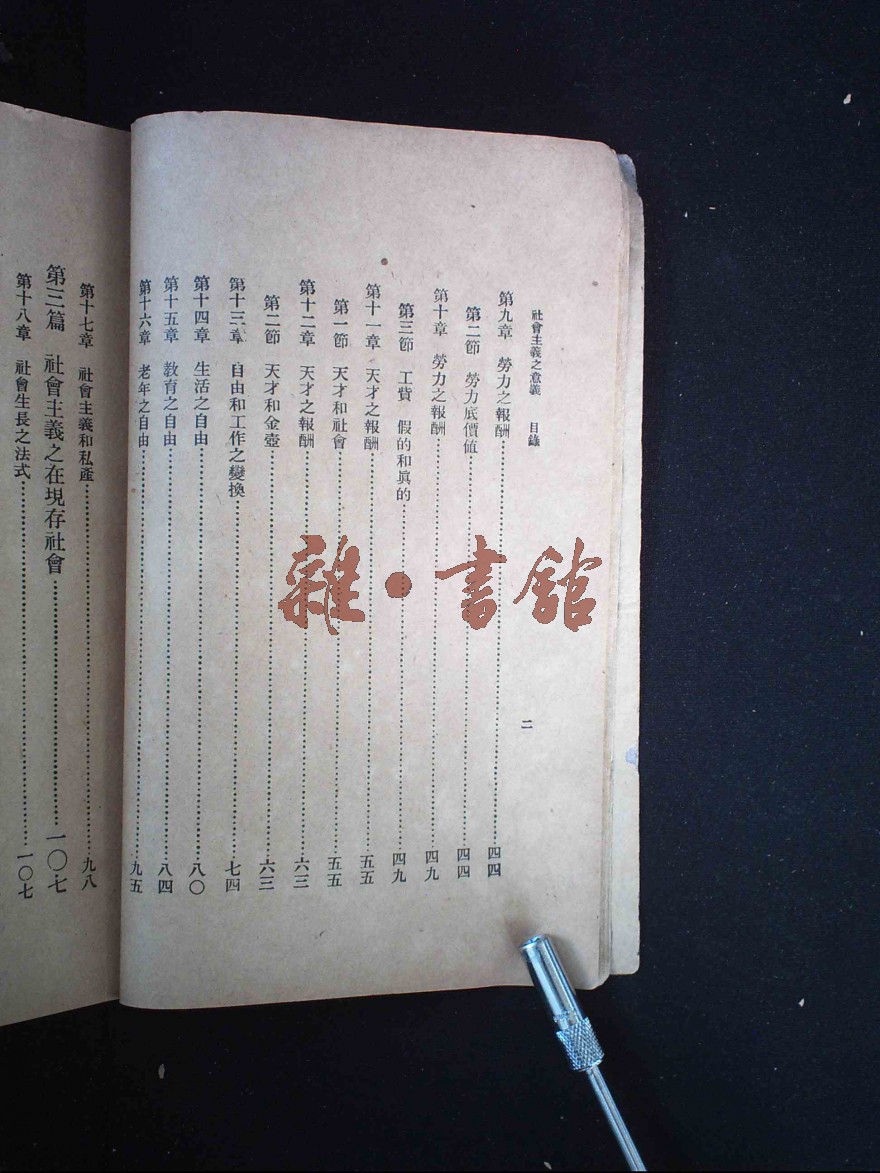 社會主義之意義 目錄
二
第九章 勞力之報酬……四四
第二節 勞力底價値……四四
第十章 勞力之報酬……四九
第三節 工貲 假的和眞的……四九
第十一章 天才之報酬……五五
第一節 天才和社會……五五
第十二章 天才之報酬……六三
第二節 天才和金壺……六三
第十三章 自由和工作之變換……七四
第十四章 生活之自由……八〇
第十五章 教育之自由……八四
第十六章 老年之自由……九五
第十七章 社會主義和私產……九八
第三篇 社會主義之在現存社會……一〇七
第十八章 社會生長之法式……一〇七
雜·書館